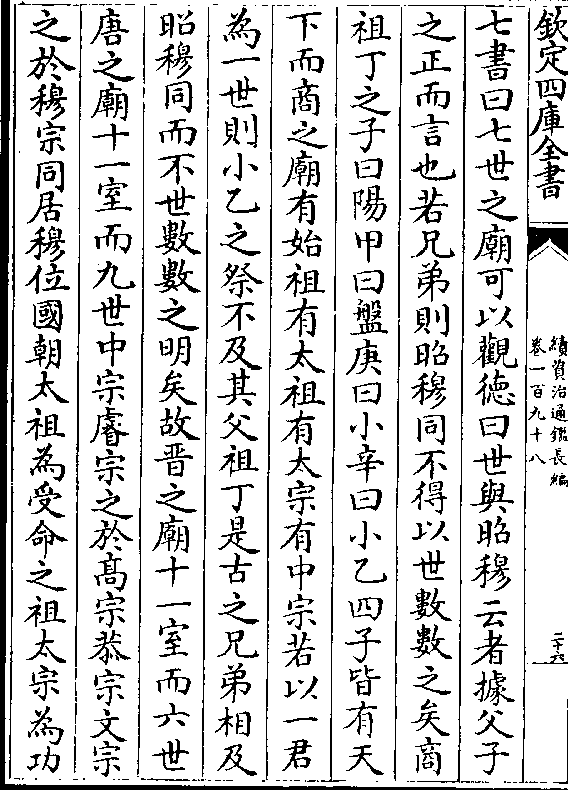 欽定四庫全書
續資治通鑑長編
卷一百九十八
二十六
七書曰七世之廟可以觀德曰世與昭穆云者據父子
之正而言也若兄弟則昭穆同不得以世數數之矣商
祖丁之子曰陽甲曰盤庚曰小辛曰小乙四子皆有天
下而商之廟有始祖有太祖有太宗有中宗若以一君
為一世則小乙之祭不及其父祖丁是古之兄弟相及
昭穆同而不世數數之明矣故晋之廟十一室而六世
唐之廟十一室而九世中宗睿宗之於髙宗恭宗文宗
之於穆宗同居穆位國朝太祖為受命之祖太宗為功